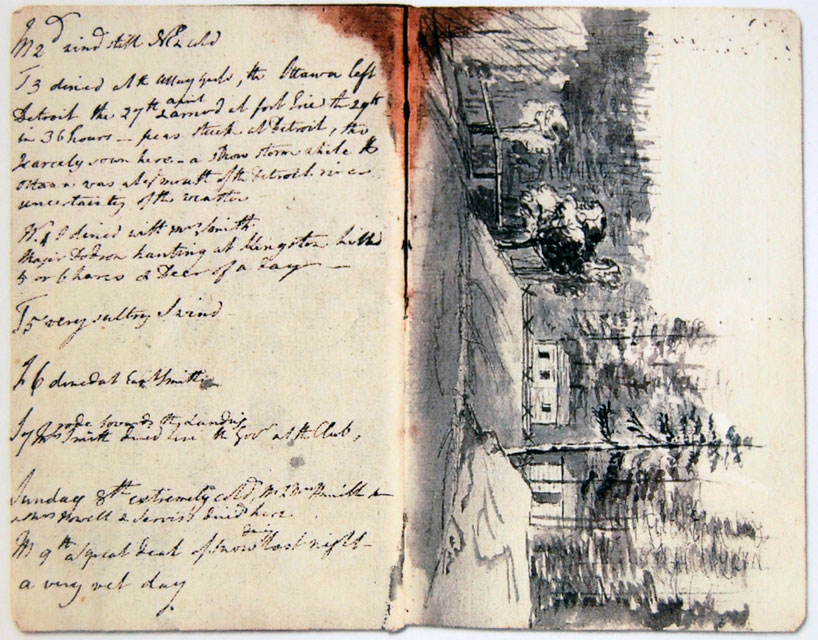 M 2d wind still NE & cold
T 3 dined at the Attny Genls, the Ottawa left
Detroit the 27th april & arrived at fort Erie the 29th
in 36 hours — peas stuck at Detroit, tho
scarcely sown here — a snow storm while the
Ottawa was at the mouth of the Detroit river
uncertainty of the weather
W. 4 I dined with Mrs Smith
Major Dodson hunting at Kingston killed
5 or 6 hares & Deer of a day —
T 5 very sultry S wind
F 6 dined at Smiths
S 7 rode towards the Landing
Mrs Smith dined here the Govr at the Club,
Sunday 8th extremely cold, Mr & Mrs
& Mrs Powell & Jarvis's dined here
M 9th a great deal of snow during last night —
a very wet day